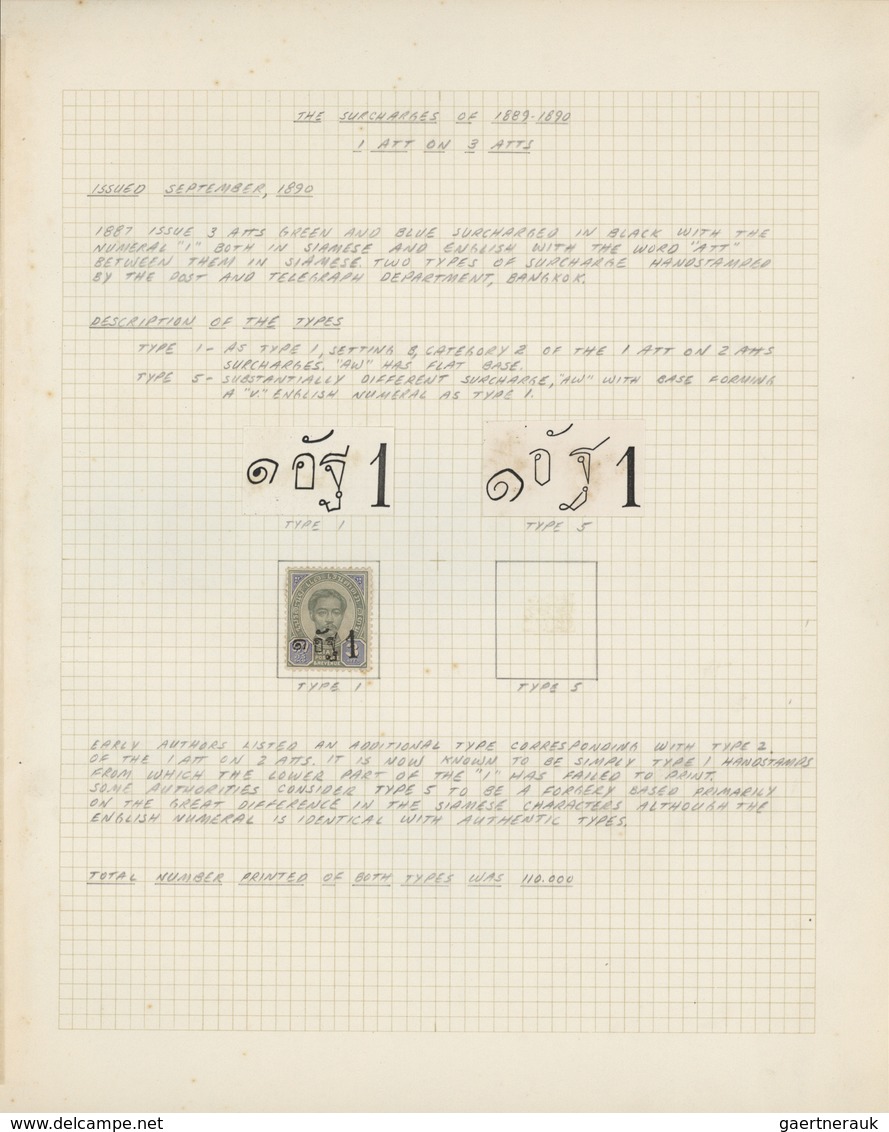 THE SURCHARGES OF 1889-1890
1 ATT ON 3 ATTS
ISSUED SEPTEMBER, 1890
1887 ISSUE 3 ATTS GREEN AND BLUE SURCHARGED IN BLACK WITH THE
NUMERAL "1" BOTH IN SIAMESE AND ENGLISH WITH THE WORD "ATT"
BETWEEN THEM IN SIAMESE. TWO TYPES OF SURCHARGE HANDSTAMPED
BY THE POST AND TELEGRAPH DEPARTMENT, BANGKOK.
DESCRIPTION OF THE TYPES
TYPE 1 - AS TYPE 1, SETTING B, CATEGORY 2 OF THE 1 ATT ON 2 ATTS
SURCHARGES. "AW" HAS FLAT BASE.
TYPE 5 - SUBSTANTIALLY DIFFERENT SURCHARGE, "AW" WITH BASE FORMING
A "V." ENGLISH NUMERAL AS TYPE 1.
๑ อัฐ 1
๑ อัฐ 1
TYPE 1
TYPE 5
๑ อัฐ 1
TYPE 1
TYPE 5
EARLY AUTHORS LISTED AN ADDITIONAL TYPE CORRESPONDING WITH TYPE 2
OF THE 1 ATT ON 2 ATTS. IT IS NOW KNOWN TO BE SIMPLY TYPE 1 HANDSTAMPS
FROM WHICH THE LOWER PART OF THE "1" HAS FAILED TO PRINT.
SOME AUTHORITIES CONSIDER TYPE 5 TO BE A FORGERY BASED PRIMARILY
ON THE GREAT DIFFERENCE IN THE SIAMESE CHARACTERS ALTHOUGH THE
ENGLISH NUMERAL IS IDENTICAL WITH AUTHENTIC TYPES.
TOTAL NUMBER PRINTED OF BOTH TYPES WAS 110.000
www.delcampe.net
gaertnerauk